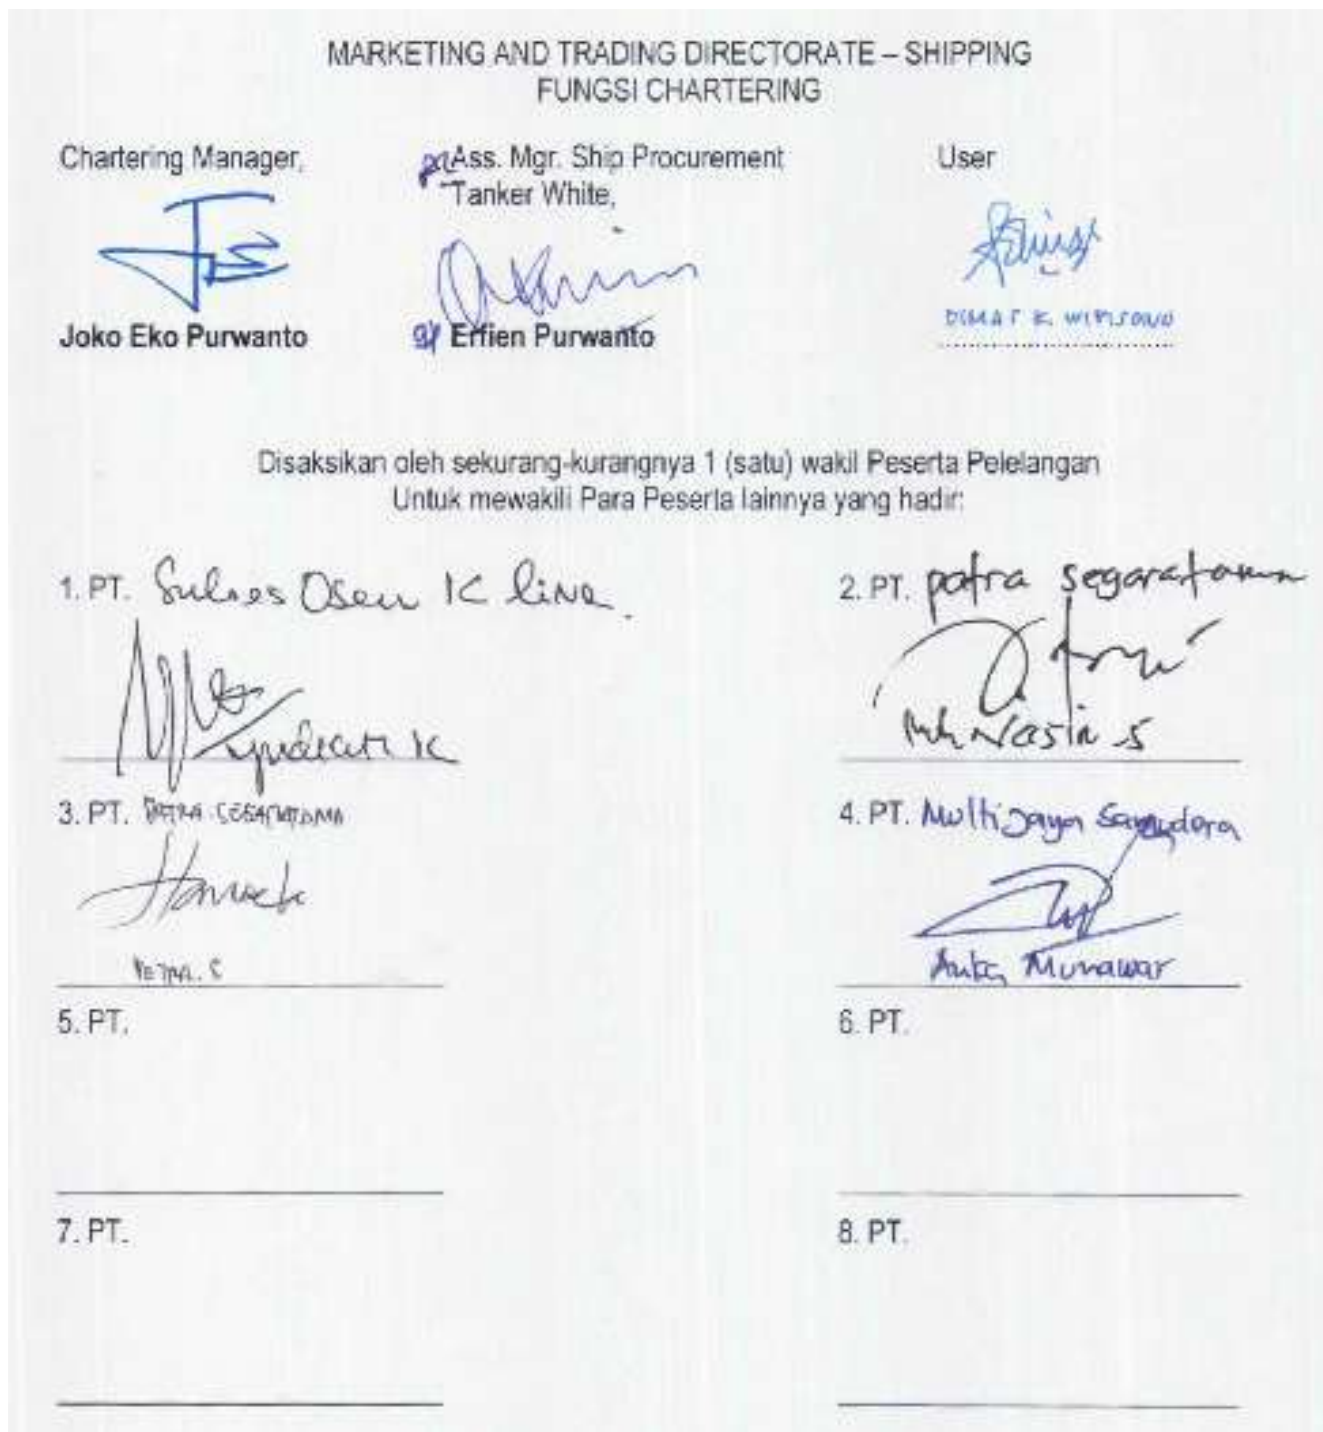 MARKETING AND TRADING DIRECTORATE – SHIPPING
FUNGSI CHARTERING
Chartering Manager,
Ass. Mgr. Ship Procurement
Tanker White,
User
Joko Eko Purwanto
Erfien Purwanto
K. WIBISONO
Disaksikan oleh sekurang-kurangnya 1 (satu) wakil Peserta Pelelangan
Untuk mewakili Para Peserta lainnya yang hadir:
1. PT. Sukses Osean K line
2. PT. patra segaratama
3. PT. PATRA SEGARATAMA
4. PT. Multi Jaya Samudera
Munawar
5. PT.
6. PT.
7. PT.
8. PT.